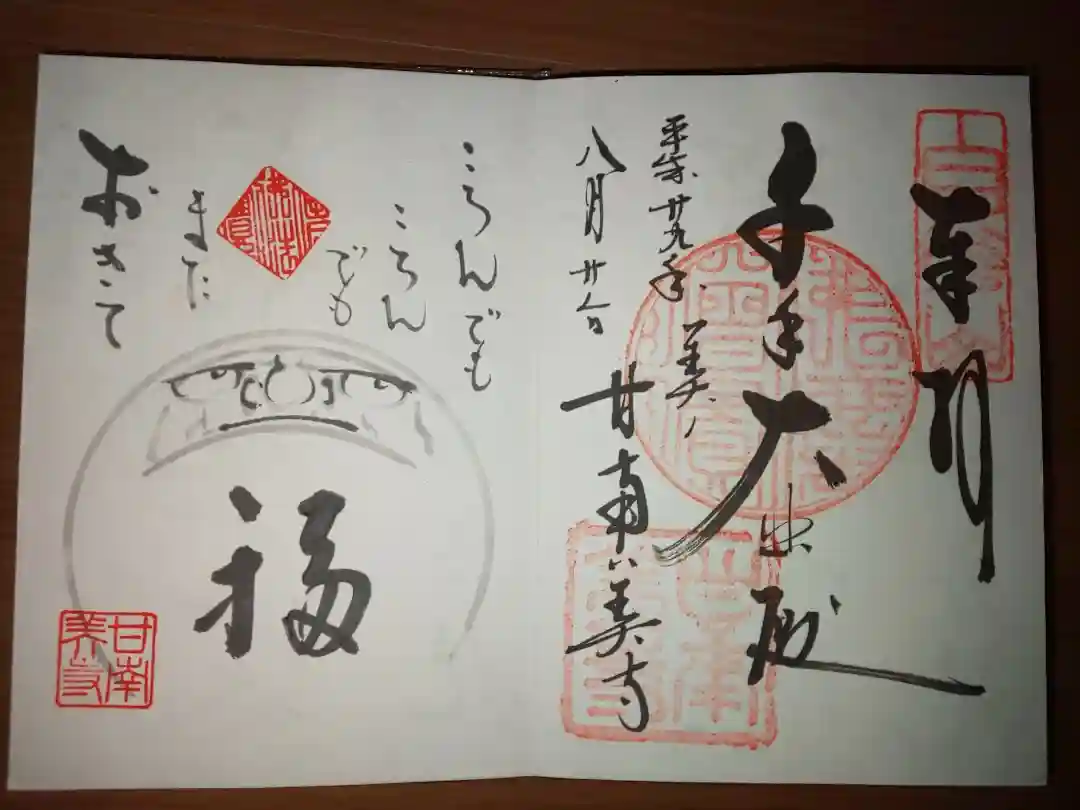 奉拝
千手大悲殿
平成廿九年
八月廿
美ノ
甘南美寺
甘南美寺
ころんでも
ころん
でも
また
おきて
福
甘南美寺